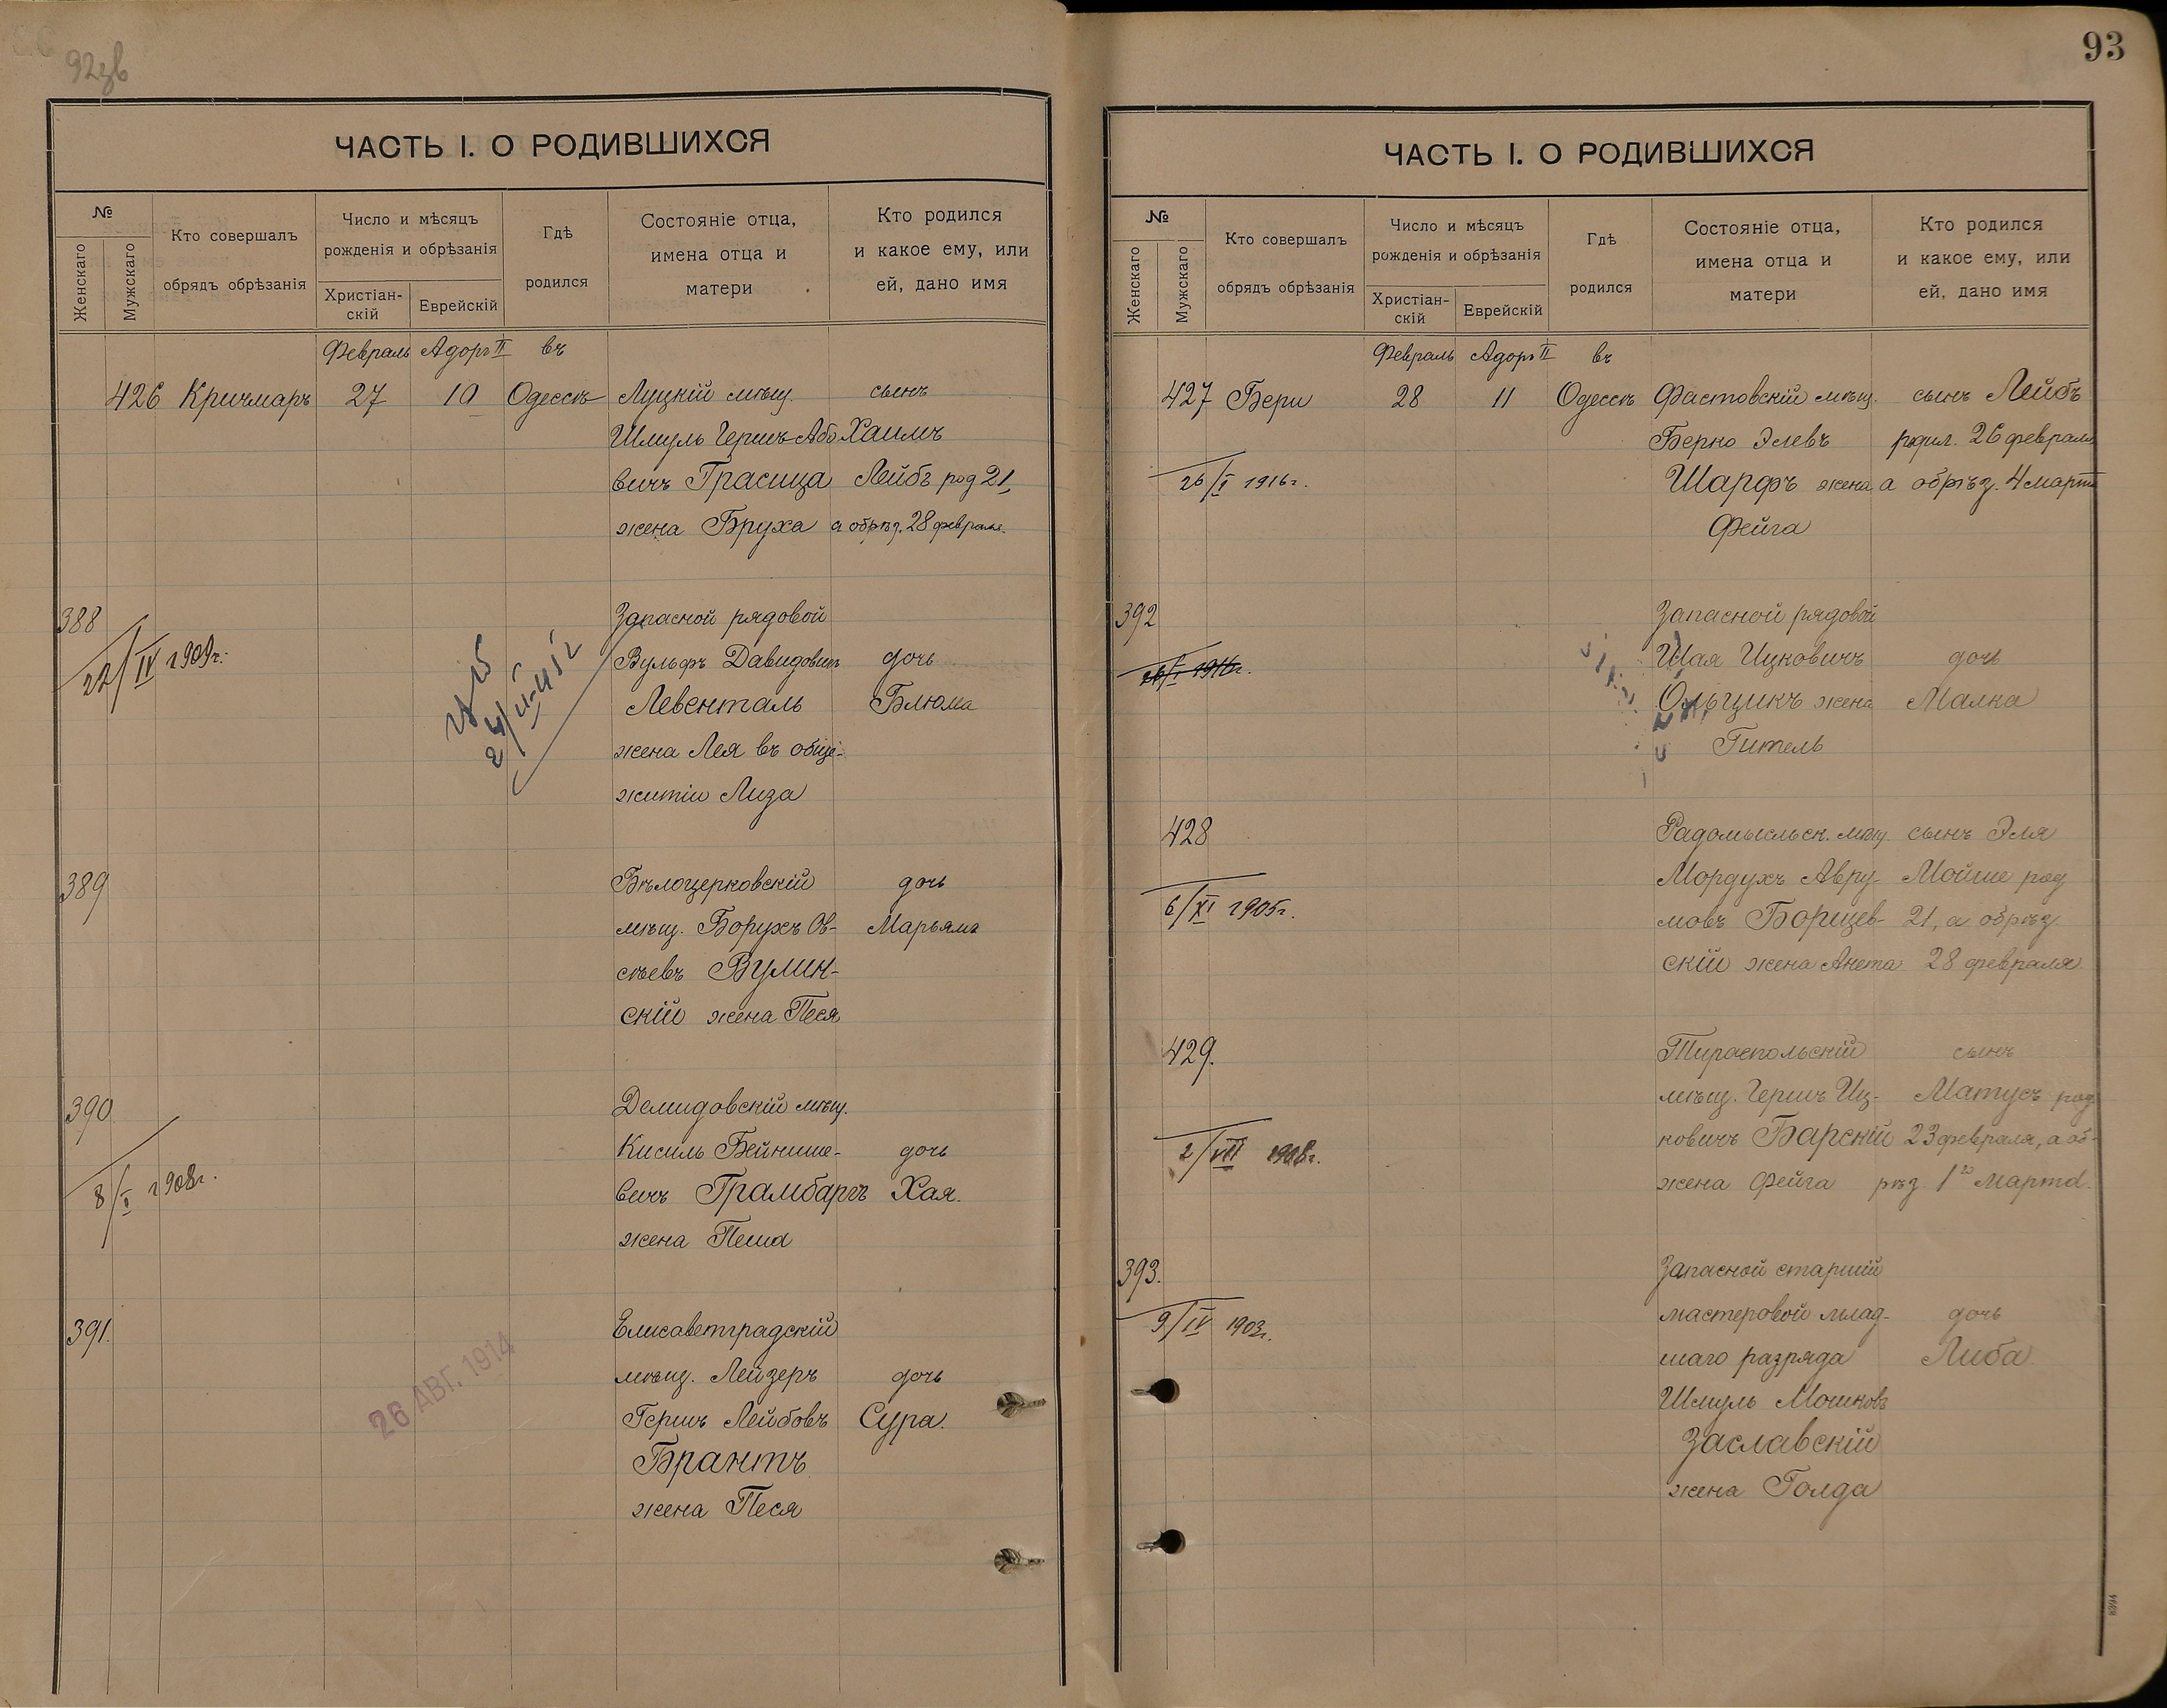 92зв
ЧАСТЬ I. О РОДИВШИХСЯ
№
Женскаго
Мужскаго
Кто совершалъ
обрядъ обрѣзанія
Число и мѣсяцъ
рожденія и обрѣзанія
Христіан-
скій
Еврейскій
Гдѣ
родился
Состояніе отца,
имена отца и
матери
Кто родился
и какое ему, или
ей, дано имя
Февраль Адоръ II въ
426 Кричмаръ 27 10 Одессѣ Луцкій мѣщ. сынъ
Шмуль Гершъ-Або Хаимъ
вичъ Грасица Лейбъ род 21,
жена Бруха а обрѣз. 28 февраля.
388 Запасной рядовой
22/IV 1909г. Вульфъ Давидовичъ дочь
Левенталь Блюма
жена Лея въ обще-
житіи Лиза
389 Бѣлоцерковскій дочь
мѣщ. Борухъ Ов- Марьяма
сѣевъ Вулин-
скій жена Песя
390 Демидовскій мѣщ.
Кисиль Бейнише- дочь
8/I 1908г. вичъ Грамбаргъ Хая.
жена Пеша
391. Елисаветградскій
мѣщ. Лейзеръ дочь
Гершъ Лейбовъ Сура.
Брантъ
жена Песя
26 АВГ. 1914
93
ЧАСТЬ I. О РОДИВШИХСЯ
№
Женскаго
Мужскаго
Кто совершалъ
обрядъ обрѣзанія
Число и мѣсяцъ
рожденія и обрѣзанія
Христіан-
скій
Еврейскій
Гдѣ
родился
Состояніе отца,
имена отца и
матери
Кто родился
и какое ему, или
ей, дано имя
Февраль Адоръ II въ
427 Бери 28 11 Одессѣ Фастовскій мѣщ. сынъ Лейбъ
Берко Элевъ родил. 26 февраля
26/I 1916г. Шарфъ жена а обрѣз. 4 марта
Фейга
392 Запасной рядовой
26/I 1916г. Шая Ицковичъ дочь
Ольщикъ жена Малка
Гитель
428 Радомысльск. мѣщ сынъ Эля
Мордухъ Авру- Мойше род
6/XI 1905г. мовъ Борщев- 21, а обрѣз.
скій жена Анета 28 февраля
429. Тираспольскій сынъ
мѣщ. Гершъ Иц- Матусъ род.
2/VII 1908г. ковичъ Барскій 23 февраля, а об-
жена Фейга рѣз 1го марта.
393. Запасной старшій
9/IV 1903г. мастеровой млад- дочь
шаго разряда Либа
Шмуль Мошковъ
Заславскій
жена Голда